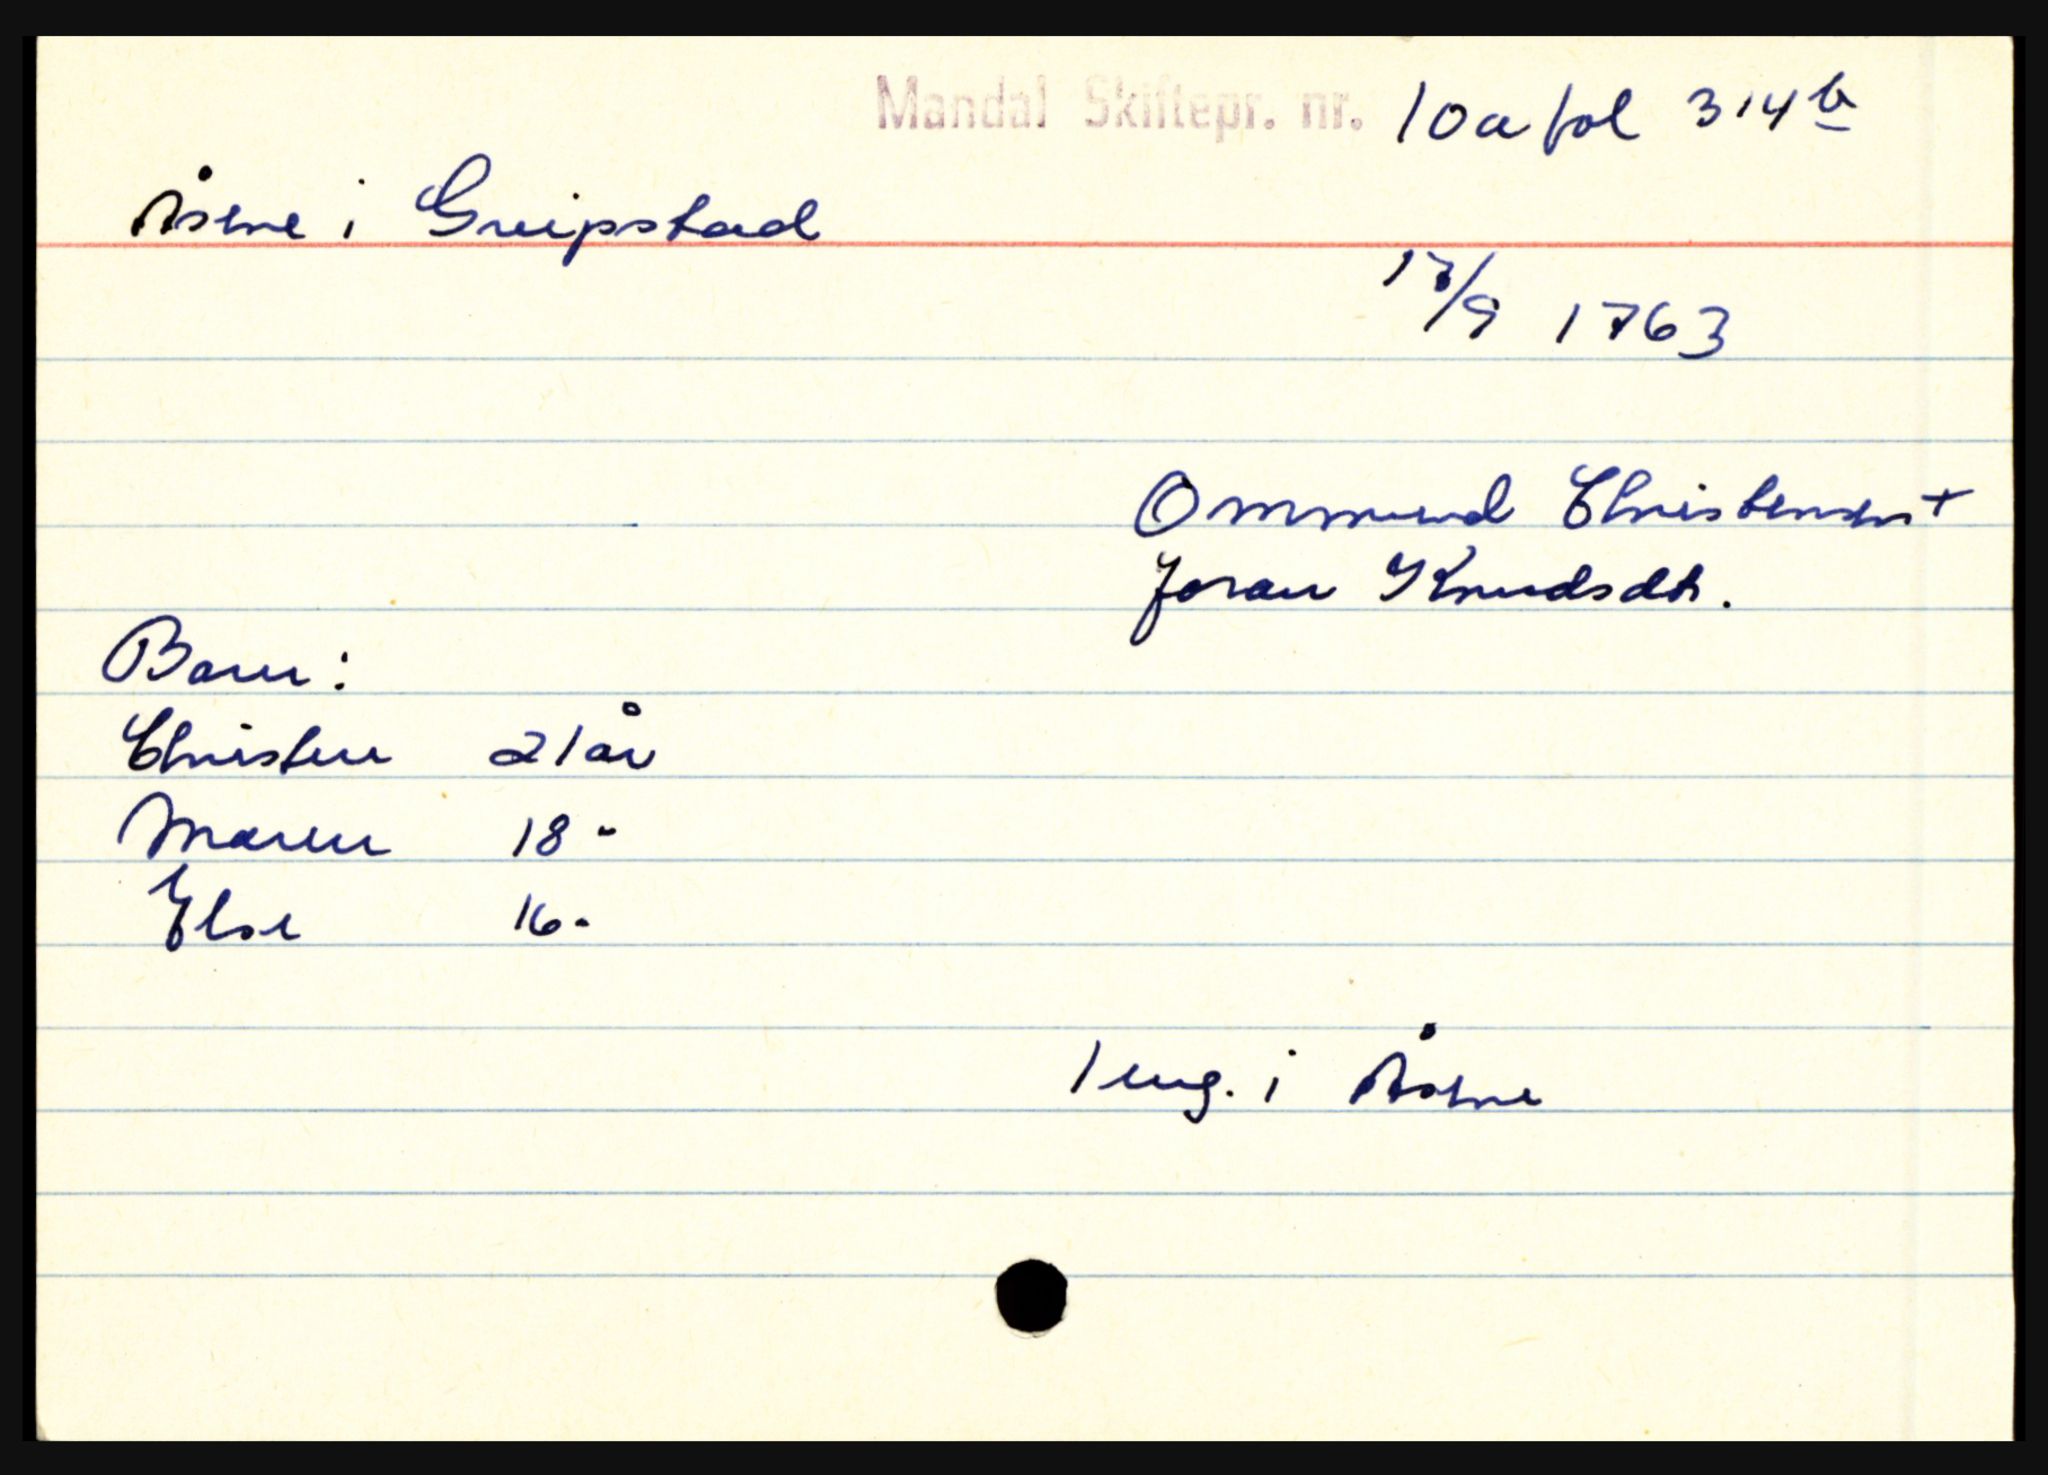 Mandal Skiftepr. nr. 10a fol 314b
Åsene i Greipstad
17/9 1763
Ommund Christensen +
Joran Knudsdtr.
Barn:
Christen 21 år
Maren 18 -
Else 16 -
1 eng. i Åsene